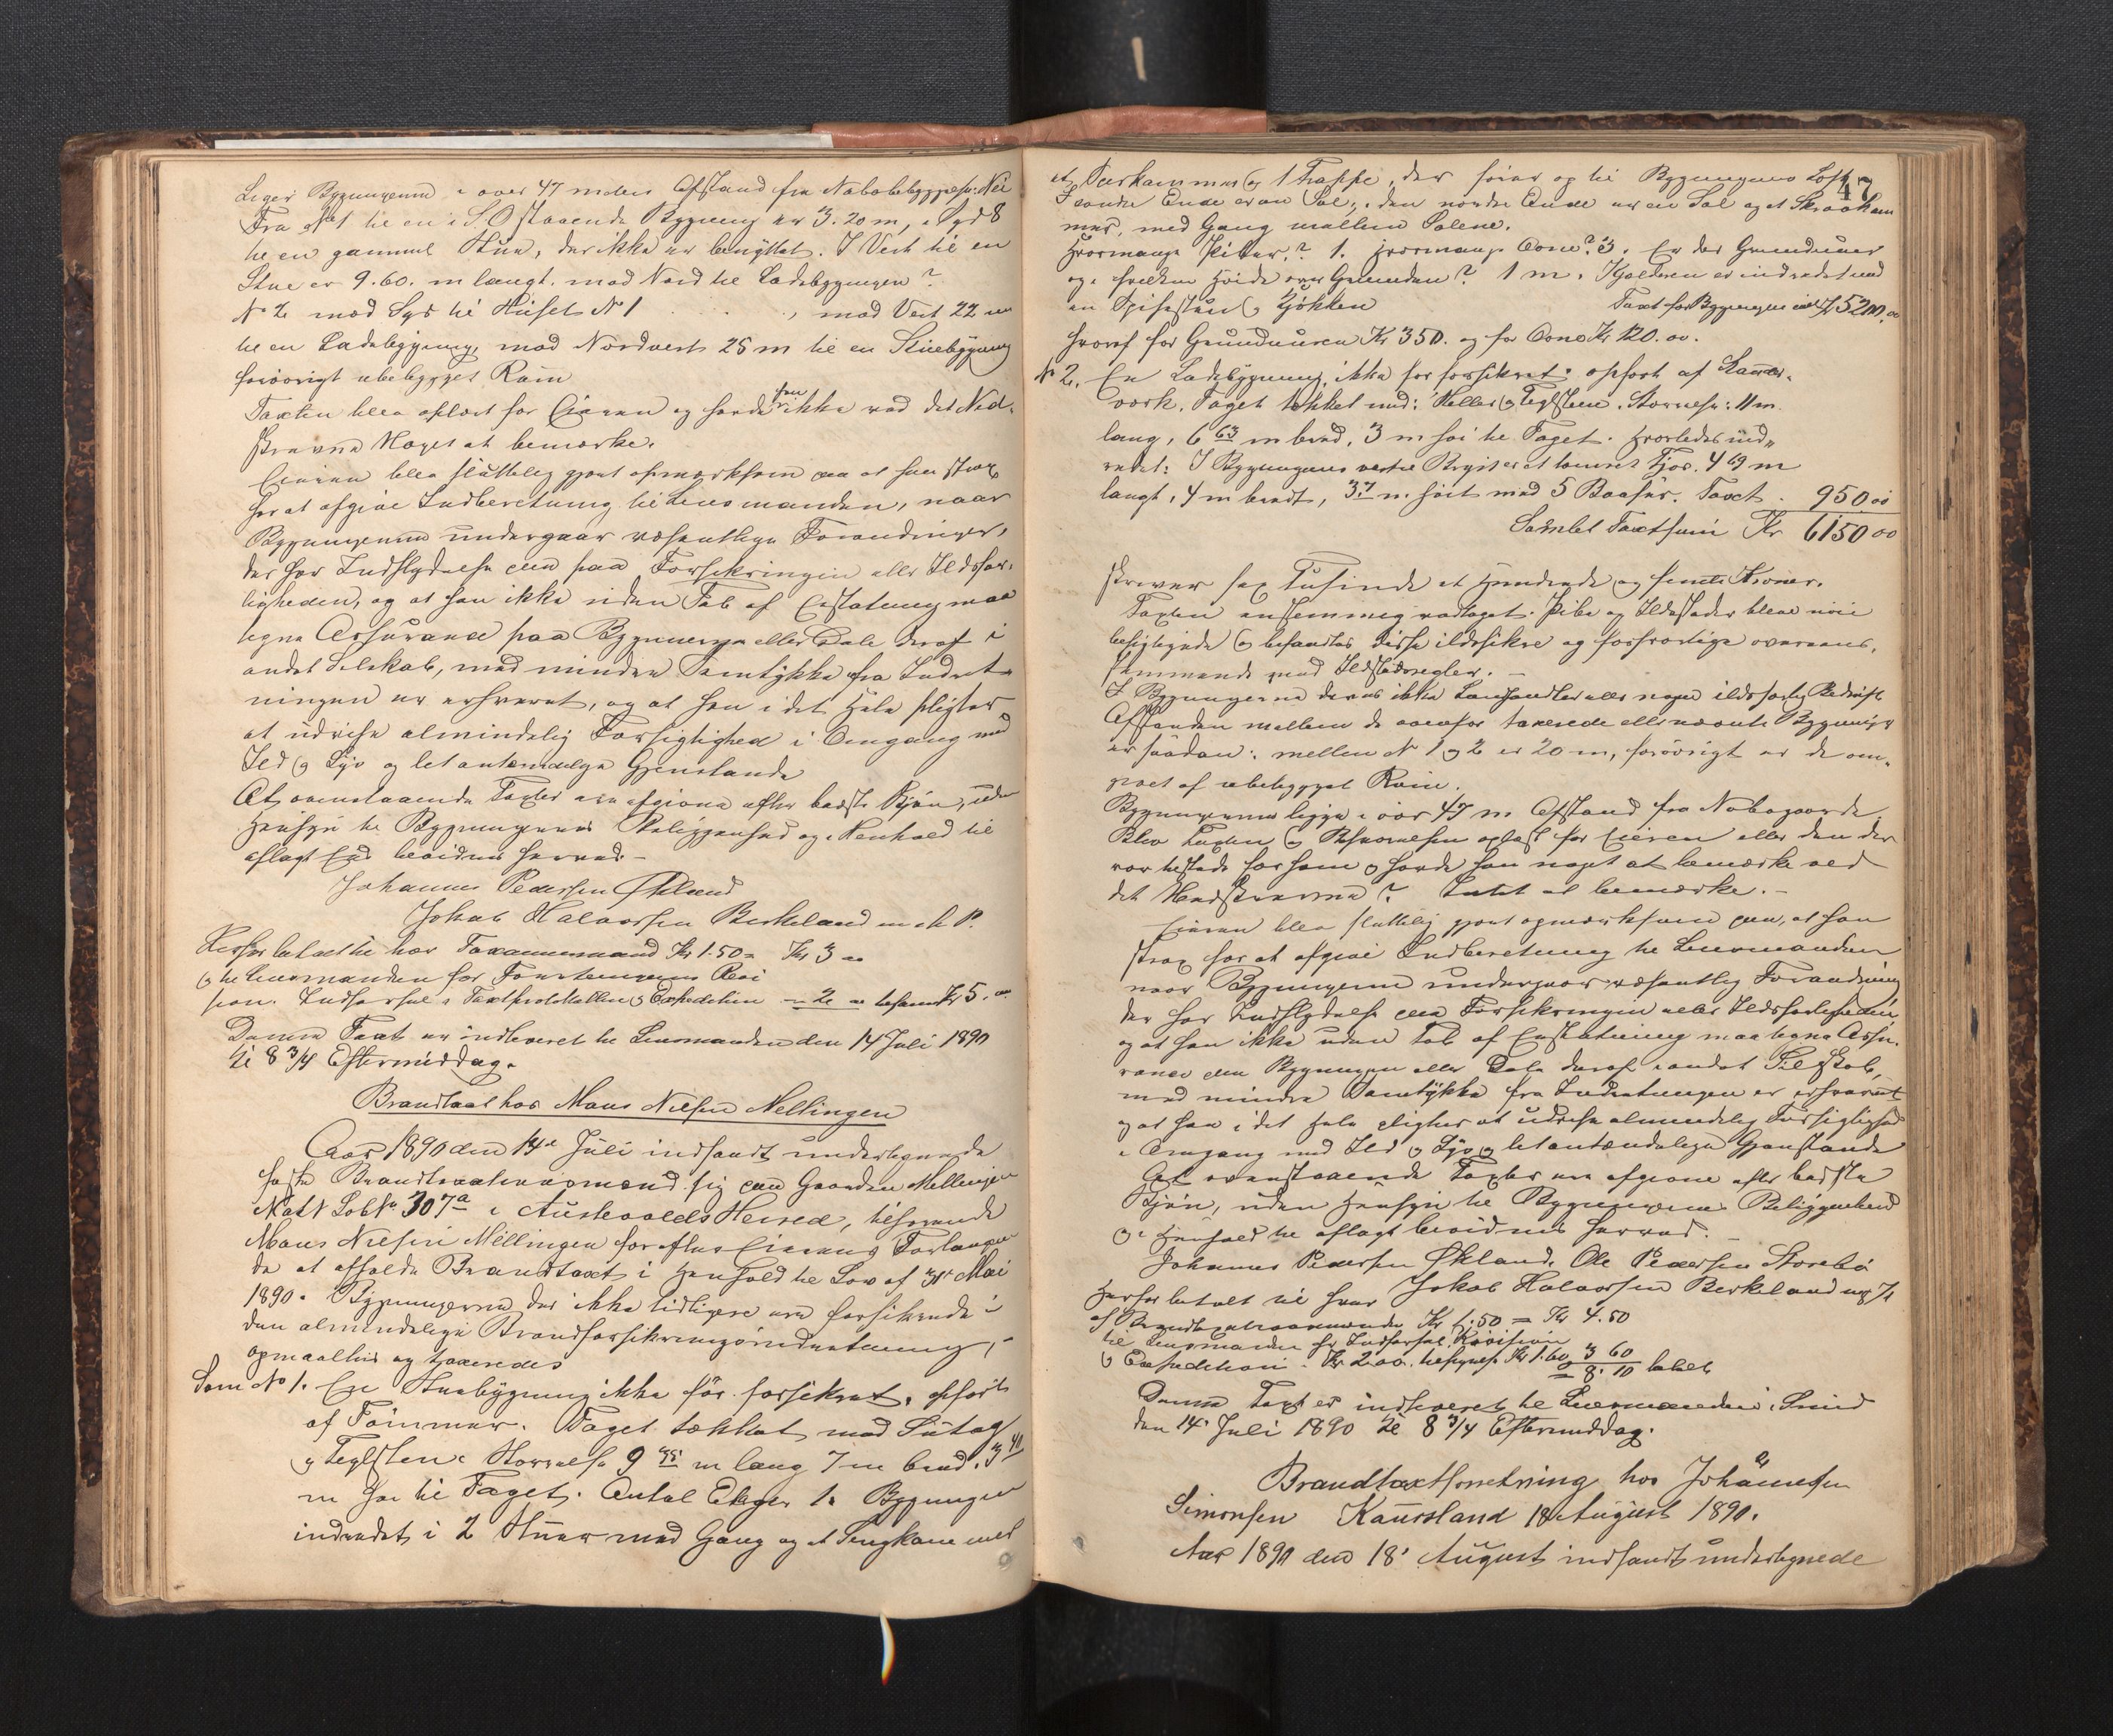 Ligger Bygningerne i over 47 meters Afstand fra Nabobebyggelse: Nei
Fra No 1 til en i S.O. staaende Bygning er 3.20 m, i Syd 8
til en gammel Stue, der ikke er benyttet. I Vest til en
Stue er 9.60. m langt. mod Nord til Ladebygningen?
No 2 mod Syd til Huset No 1 , mod Vest 22 m
til en Ladebygning, mod Nordvest 25 m til en Stuebygning
forøvrigt ubebygget Rum
Taxten blev oplæst for Eieren og havde han ikke ved det Ned-
skrevne Noget at bemærke.
Eieren blev sluttelig gjort opmærksom paa at han strax
har at afgive Indberetning til Lensmanden, naar
Bygningerne undergaar væsentlige Forandringer,
der har Indflydelse paa Forsikringen eller Ildsfar-
ligheden, og at han ikke uden Tab af Erstatning maa
tegne Assurance paa Bygningen eller Dele deraf i
andet Selskab, med mindre Samtykke fra Indret-
ningen er erhvervet, og at han i det Hele pligter
at udvise almindelig Forsigtighed i Omgang med
Ild og Lys og letantændelige Gjenstande
At ovenstaaende Taxter ere afgivne efter bedste Skjøn, uden
Hensyn til Bygningernes Beliggenhed og i Henhold til
aflagt Ed bevidnes herved.
Johannes Pedersen Økland
Jakob Halvorsen Birkeland m. p. P.
Herfor betalt til hver Taxationsmand Kr 1.50 = Kr 3
og til Lensmanden for Forretningens Revi
sion. Indførsel i Taxtprotokollen og Expedition = 2 tilsam Kr 5.
Denne Taxt er indleveret til Lensmanden den 14 Juli 1890
Kl 8 3/4 Eftermiddag.
Brandtaxt hos Mons Nilsen Mellingen
Aar 1890 den 14de Juli indfandt undertegnede
faste Brandtaxationsmænd sig paa Gaarden Mellingen
Mat N Løb No 307a i Austevolds Herred, tilhørende
Mons Nilsen Mellingen for efter Eierens Forlangen
de at afholde Brandtaxt i Henhold til Lov af 31te Mai
1890. Bygningerne der ikke tidligere ere forsikrede i
den almindelige Brandforsikringsindretning,
opmaaltes og taxeredes
Som No 1. En Stuebygning ikke før forsikret, opført
af Tømmer. Taget tækket med Sutag
og Teglsten. Størrelse 9 m lang 7 m bred. 3 40
m høi til Taget. Antal Etager 1. Bygningen
indredet i 2 Stuer med Gang og et Sengkammer med
47
et Forkammer og 1 Trappe, der fører op til Bygningens Loft
I søndre Ende er en Sal, i den nordre Ende er en Sal og et Skraakam
mer, med Gang mellem Salene.
Hvormange Piber? 1. Hvormange Ovne? 3. Er der Grundmur
og i hvilken Høide over Grunden? 1 m. Kjelderen er indredet med
en Spisestue og Kjøkken Taxt for Bygningen Kr 5200.00
hvoraf for Grundmuren Kr 350. og for Ovne Kr 120.00.
No 2. En Ladebygning, ikke før forsikret. opført af
værk. Taget tækket med: Heller og Teglsteen. Størrelse: 11 m.
lang, 6 63 m bred, 3 m høi til Taget. Hvorledes ind-
redet: I Bygningens vestre er et tømret Fjøs. 4 69 m
langt, 4 m bredt, m. høit med 5 Baaser. Taxt . 950 00
Samlet Taxtsum Kr 6150 00
skriver sex Tusinde et Hundrede og femti Kroner.
Taxten enstemmig vedtaget. Pibe og Ildsteder bleve nøie
besigtigede og befandtes disse ildsikre og forsvarlige overens-
stemmende med Ildstedsregler.
I Bygningerne drives ikke Landhandler eller nogen ildsfarlig Bedrift
Afstanden mellem de ovenfor taxerede eller nævnte Bygninger
er saadan: mellem No 1 og 2 er 20 m, forøvrigt er de om-
givet af ubebygget Rum.
Bygningerne ligger i over 47 m Afstand fra Nabogaarde.
Blev Taxten og Beskrivelsen oplæst for Eieren eller den der
var tilstede for ham og havde han noget at bemærke ved
det Nedskrevne? Intet at bemærke.
Eieren blev sluttelig gjort opmærksom paa, at han
strax har at afgive Indberetning til Lensmanden
naar Bygningerne undergaar væsentlig Forandring
der har Indflydelse paa Forsikringen eller Ildsfarligheden
og at han ikke uden Tab af Erstatning maa tegne Assu-
rance paa Bygningen eller Dele deraf i andet Selskab,
med mindre Samtykke fra Indretningen er erhvervet
og at han i det Hele pligter at udvise almindelig Forsigtighed
i Omgang med Ild og Lys og letantændelige Gjenstande
At ovenstaaende Taxter ere afgivne efter bedste
Skjøn, uden Hensyn til Bygningernes Beliggenhed
og i Henhold til aflagt bevidnes herved.
Johannes Pedersen Økland, Ole Pedersen Storebø
Herfor betalt til hver Jakob Halvorsen Berkeland
af Brandtaxationsmændene Kr 1.50 = Kr 4.50
til Lensmanden for Indførsel. Revision
og Expedition. Kr 2.00. Kr 1.60 3 60
= 8. 10 betalt
Denne Taxt er indleveret til Lensmanden i Sund
den 14' Juli 1890 Kl 8 3/4 Eftermiddag.
Brandtaxtforretning hos Johannes
Simonsen Kaursland 18 August 1890.
Aar 1890 den 18' August indfandt undertegnede